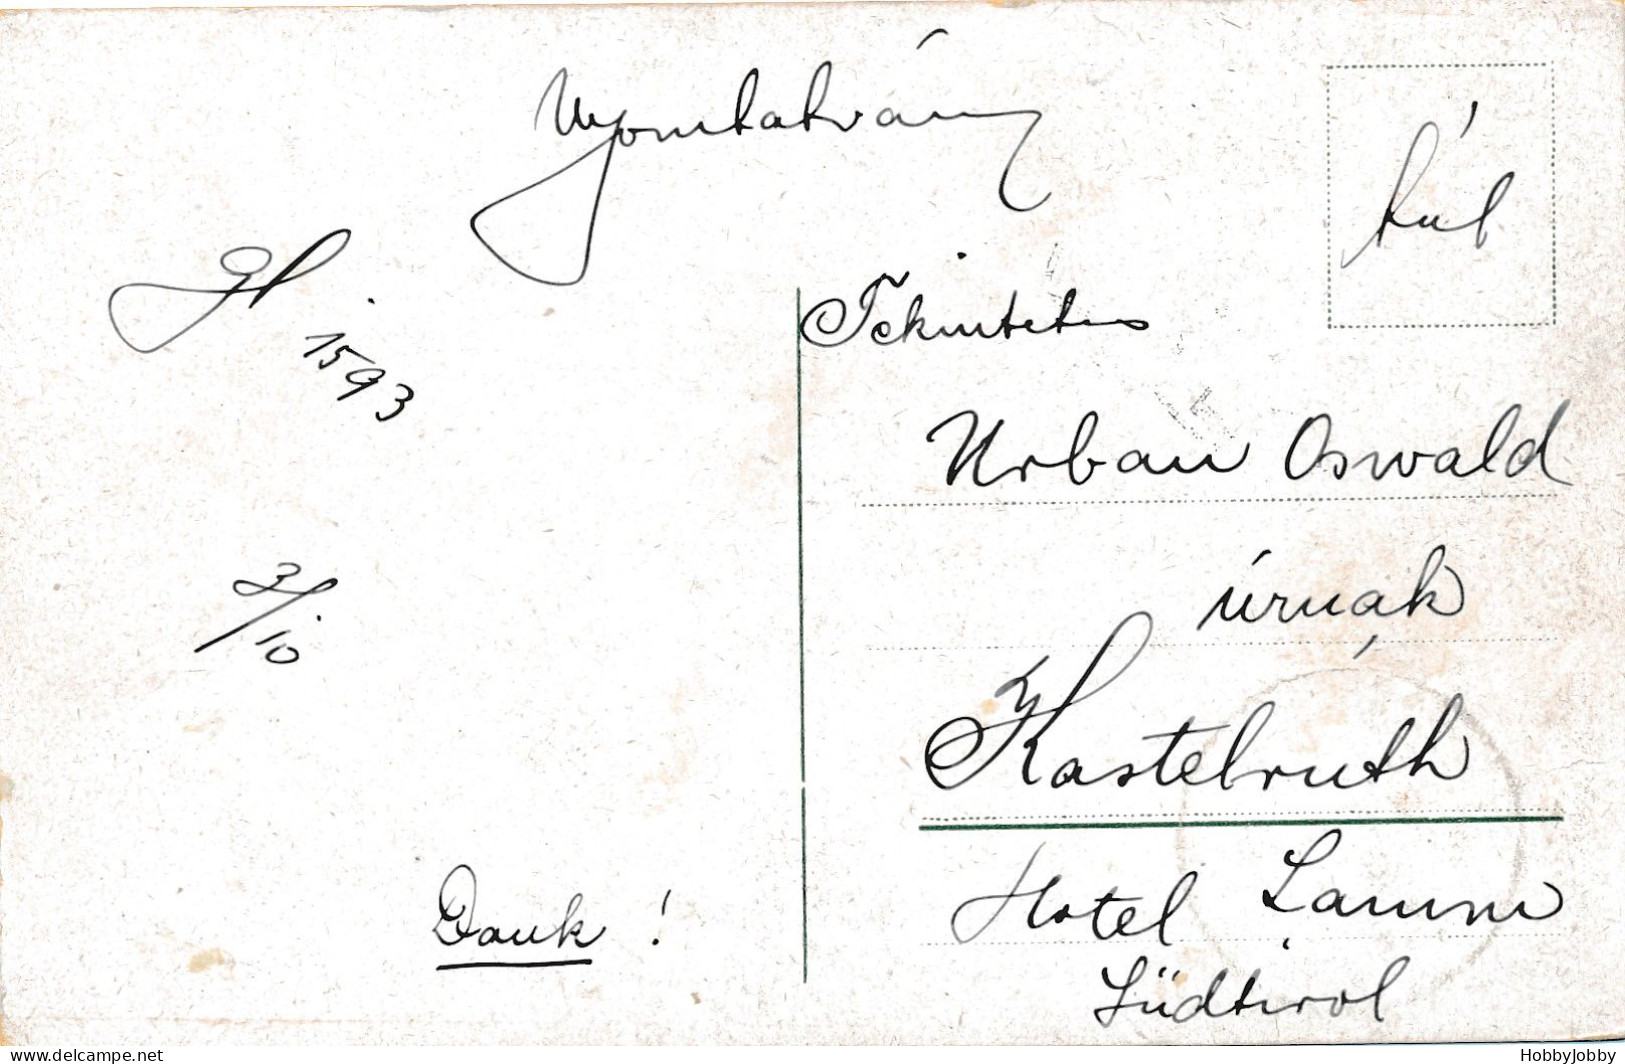 Nyomtatvány
túl
1593
Tekintetes
Urban Oswald
úrnak
3/10
Kastelruth
Hotel Lamm
Dank !
Südtirol
https://www.delcampe.net
HobbyJobby